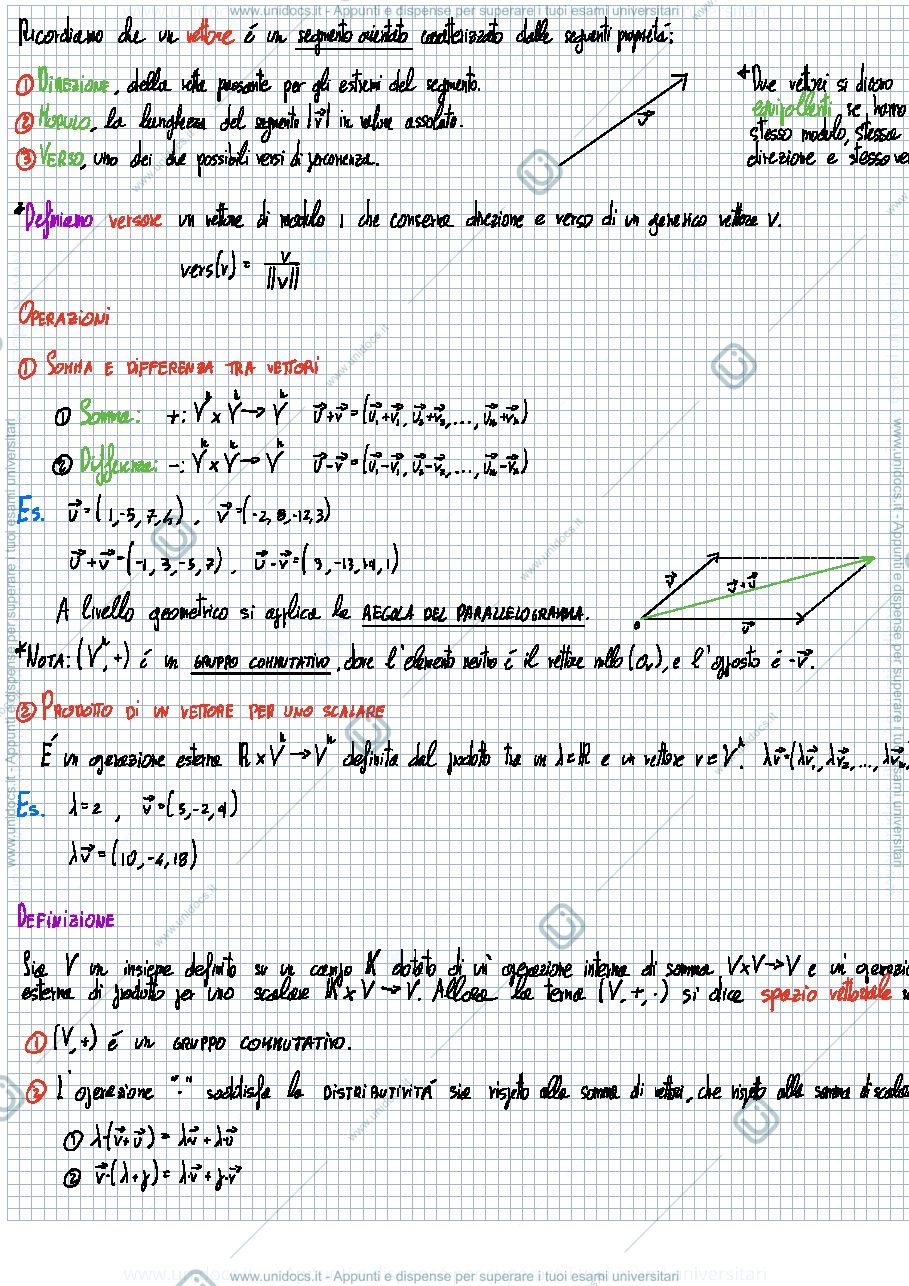 www.unidocs.it - Appunti e dispense per superare i tuoi esami universitari
Ricordiamo che un vettore é un segmento orientato caratterizzato dalle seguenti proprietá:
① DIREZIONE, della retta passante per gli estremi del segmento.
② MODULO, la lunghezza del segmento |v⃗| in valore assoluto.
③ VERSO, uno dei due possibili versi di percorrenza.
v⃗
* Due vettori si dicono
equipollenti se hanno
stesso modulo, stessa
direzione e stesso ve
* Definiamo versore un vettore di modulo 1 che conserva direzione e verso di un generico vettore V.
vers(v) = v / ||v||
OPERAZIONI
① SOMMA E DIFFERENZA TRA VETTORI
① Somma: +: Vⁿ x Vⁿ → Vⁿ u⃗+v⃗ = (u⃗₁+v⃗₁, u⃗₂+v⃗₂, ..., u⃗ₙ+v⃗ₙ)
② Differenza: -: Vⁿ x Vⁿ → Vⁿ u⃗-v⃗ = (u⃗₁-v⃗₁, u⃗₂-v⃗₂, ..., u⃗ₙ-v⃗ₙ)
Es. u⃗ = (1,-5,7,4), v⃗ = (-2,8,-12,3)
u⃗+v⃗ = (-1,3,-5,7), u⃗-v⃗ = (3,-13,19,1)
A livello geometrico si applica la REGOLA DEL PARALLELOGRAMMA.
* NOTA: (Vⁿ, +) é un GRUPPO COMMUTATIVO, dove l'elemento neutro é il vettore nullo (0ᵥ), e l'opposto é -v⃗.
② PRODOTTO DI UN VETTORE PER UNO SCALARE
É un operazione esterna ℝ x Vⁿ → Vⁿ definita dal prodotto tra un λ∈ℝ e un vettore v∈Vⁿ. λv⃗ = (λv⃗₁, λv⃗₂, ..., λv⃗ₙ,
Es. λ=2, v⃗ = (5,-2,9)
λv⃗ = (10,-4,18)
DEFINIZIONE
Sia V un insieme definito su un campo K dotato di un' operazione interna di somma V x V → V e un' operazi
esterna di prodotto per uno scalare K x V → V. Allora la terna (V, +, ·) si dice spazio vettoriale
① (V, +) é un GRUPPO COMMUTATIVO.
② L'operazione "·" soddisfa la DISTRIBUTIVITÁ sia rispetto alla somma di vettori, che rispetto alla somma di scala
① λ·(v⃗+u⃗) = λ·v⃗ + λ·u⃗
② v⃗·(λ+γ) = λ·v⃗ + γ·v⃗
www.unidocs.it - Appunti e dispense per superare i tuoi esami universitari